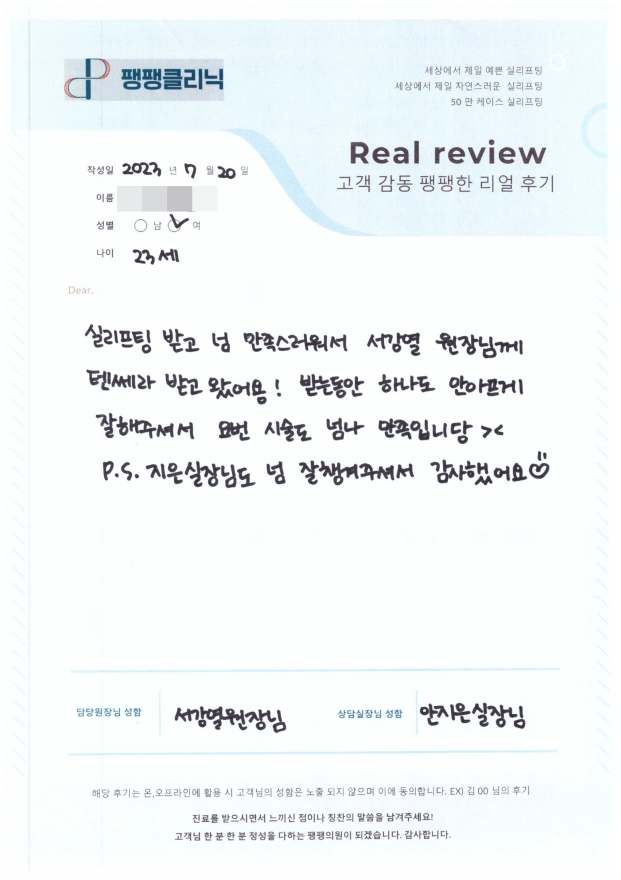 팽팽클리닉
세상에서 제일 예쁜 실리프팅
세상에서 제일 자연스러운 실리프팅
50 만 케이스 실리프팅
Real review
고객 감동 팽팽한 리얼 후기
작성일 2023 년 7 월 20 일
이름
성별 남 여
나이 23세
Dear.
실리프팅 받고 넘 만족스러워서 서강열 원장님께
텐쎄라 받고 왔어욤! 받는동안 하나도 안아프게
잘해주셔서 요번 시술도 넘나 만족입니당 ><
P.S. 지은실장님도 넘 잘챙겨주셔서 감사했어요
담당원장님 성함 서강열원장님 상담실장님 성함 안지은실장님
해당 후기는 온,오프라인에 활용 시 고객님의 성함은 노출 되지 않으며 이에 동의합니다. EX) 김 00 님의 후기
진료를 받으시면서 느끼신 점이나 칭찬의 말씀을 남겨주세요!
고객님 한 분 한 분 정성을 다하는 팽팽의원이 되겠습니다. 감사합니다.